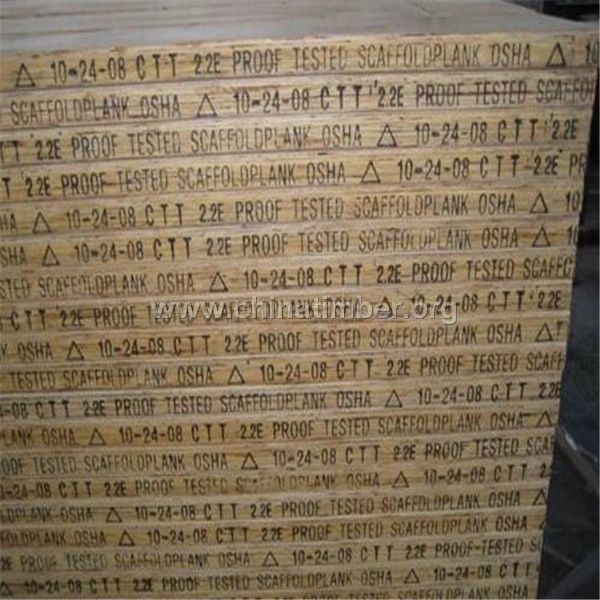 △ 10-24-08 CTT 2.2E PROOF TESTED SCAFFOLDPLANK OSHA △
SCAFFOLDPLANK OSHA △ 10-24-08 CTT 2.2E PROOF TESTED SCAFFOLDP
TT 2.2E PROOF TESTED SCAFFOLDPLANK OSHA △ 10-24-08 CTT 2.2E
2.2E PROOF TESTED SCAFFOLDPLANK OSHA △ 10-24-08 CTT 2.2E PROOF
HA △ 10-24-08 CTT 2.2E PROOF TESTED SCAFFOLDPLANK OSHA △ 10
SHA △ 10-24-08 CTT 2.2E PROOF TESTED SCAFFOLDPLANK OSHA △ 10
STED SCAFFOLDPLANK OSHA △ 10-24-08 CTT 2.2E PROOF TESTED SCAFFC
TESTED SCAFFOLDPLANK OSHA △ 10-24-08 CTT 2.2E
www.chinatimber.org
CTT 2.2E PROOF TESTED SCAFFOLDPLANK OSHA △ 10-24-08 CTT
OSHA △ 10-24-08 CTT 2.2E PROOF TESTED SCAFFOLDPLANK OSHA △
TESTED SCAFFOLDPLANK OSHA △ 10-24-08 CTT 2.2E PROOF TESTED
-24-08 CTT 2.2E PROOF TESTED SCAFFOLDPLANK OSHA △ 10-24-08 CTT 2.2E
PLANK OSHA △ 10-24-08 CTT 2.2E PROOF TESTED SCAFFOLDPLANK OSHA
OOF TESTED SCAFFOLDPLANK OSHA △ 10-24-08 CTT 2.2E PROOF TESTED SCAF
-24-08 CTT 2.2E PROOF TESTED SCAFFOLDPLANK OSHA △ 10-24-08 CTT
OLDPLANK OSHA △ 10-24-08 CTT 2.2E PROOF TESTED SCAFFOLDPLANK OSHA △
LDPLANK OSHA △ 10-24-08 CTT 2.2E PROOF TESTED SCAFFOLDPLANK OSHA
2E PROOF TESTED SCAFFOLDPLANK OSHA △ 10-24-08 CTT 2.2E PROOF TESTED
△ 10-24-08 CTT 2.2E PROOF TESTED SCAFFOLDPLANK OSHA △ 10-24-08 C